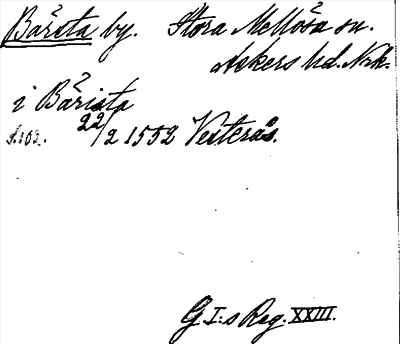 Bårsta by. Stora Mellösa sn.
Askers hd. Nrk.
i Bårista
s. 103. 22/2 1552 Vesterås.
G. I:s Reg. XXIII.